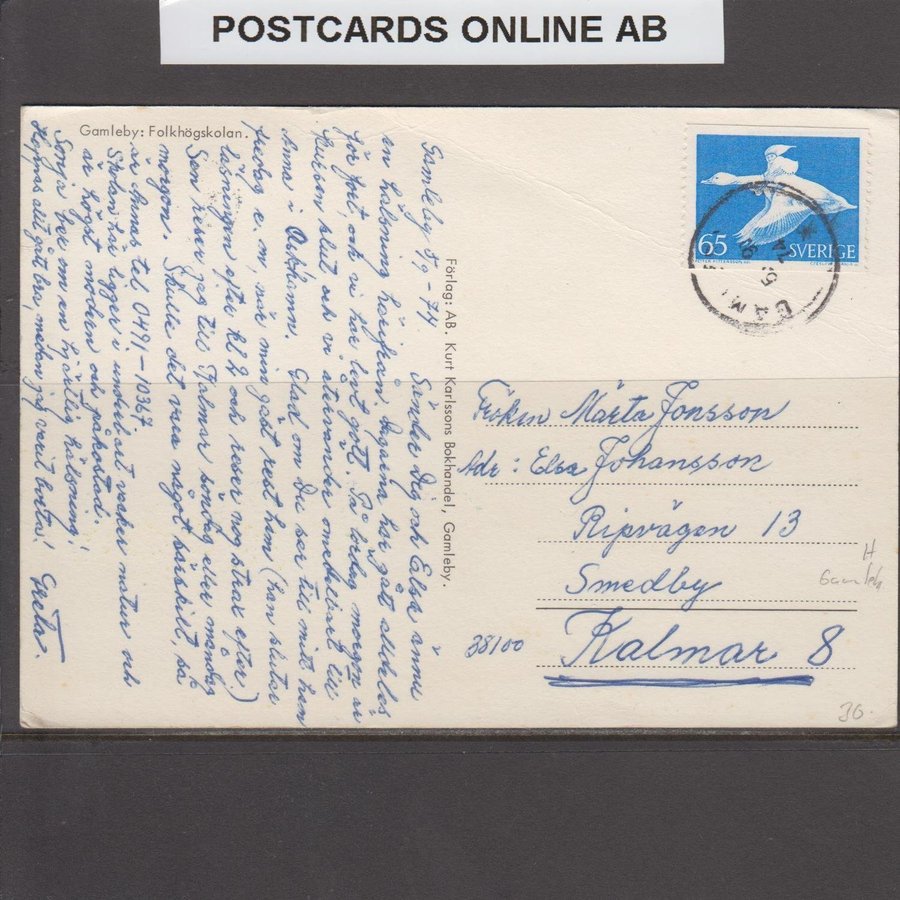 POSTCARDS ONLINE AB
Gamleby: Folkhögskolan.
Gamleby 5/9-74. Sänder Dig och Elsa ännu
en hälsning härifrån. Dagarna har gått alldeles
för fort, och vi har levt gott. På lördag morgon är
kursen slut och vi återvänder omedelbart till
Anna i Oskhamn. Glad om Du ser till mitt hem
fredag e.m. när min gäst rest hem (han slutar
läsningen efter kl 2 och reser nog strax efter.)
Sen reser jag till Kalmar söndag eller måndag
morgon. Skulle det vara något särskilt, så
är Annas tel 0491-10367.
Skolan här ligger i underbart vacker natur och
är högst modern och påkostad.
Sonja ber om en hjärtlig hälsning!
Hoppas allt gått bra, medan jag varit borta! Greta.
Förlag: AB. Kurt Karlssons Bokhandel, Gamleby.
65 SVERIGE
Fröken Märta Jonsson
Adr: Elsa Johansson
Ripvägen 13
Smedby
38100 Kalmar 8
H
30.